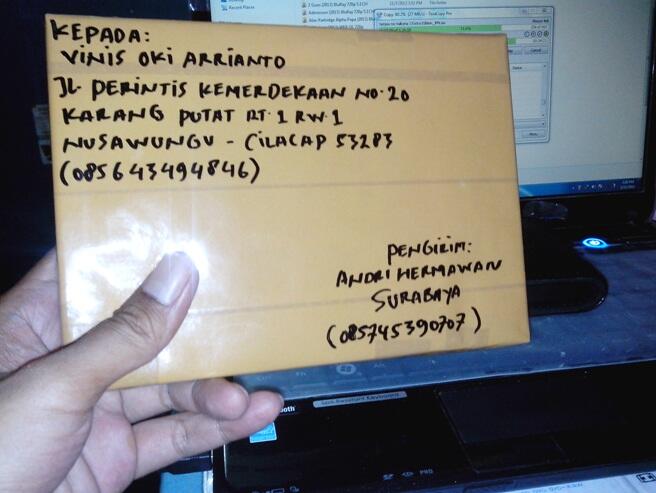 KEPADA:
VINIS OKI ARRIANTO
JL. PERINTIS KEMERDEKAAN NO. 20
KARANG PUTAT RT. 1 RW. 1
NUSAWUNGU - CILACAP 53283
(085643494846)
PENGIRIM:
ANDRI HERMAWAN
SURABAYA
(085745390707)
Recent Places